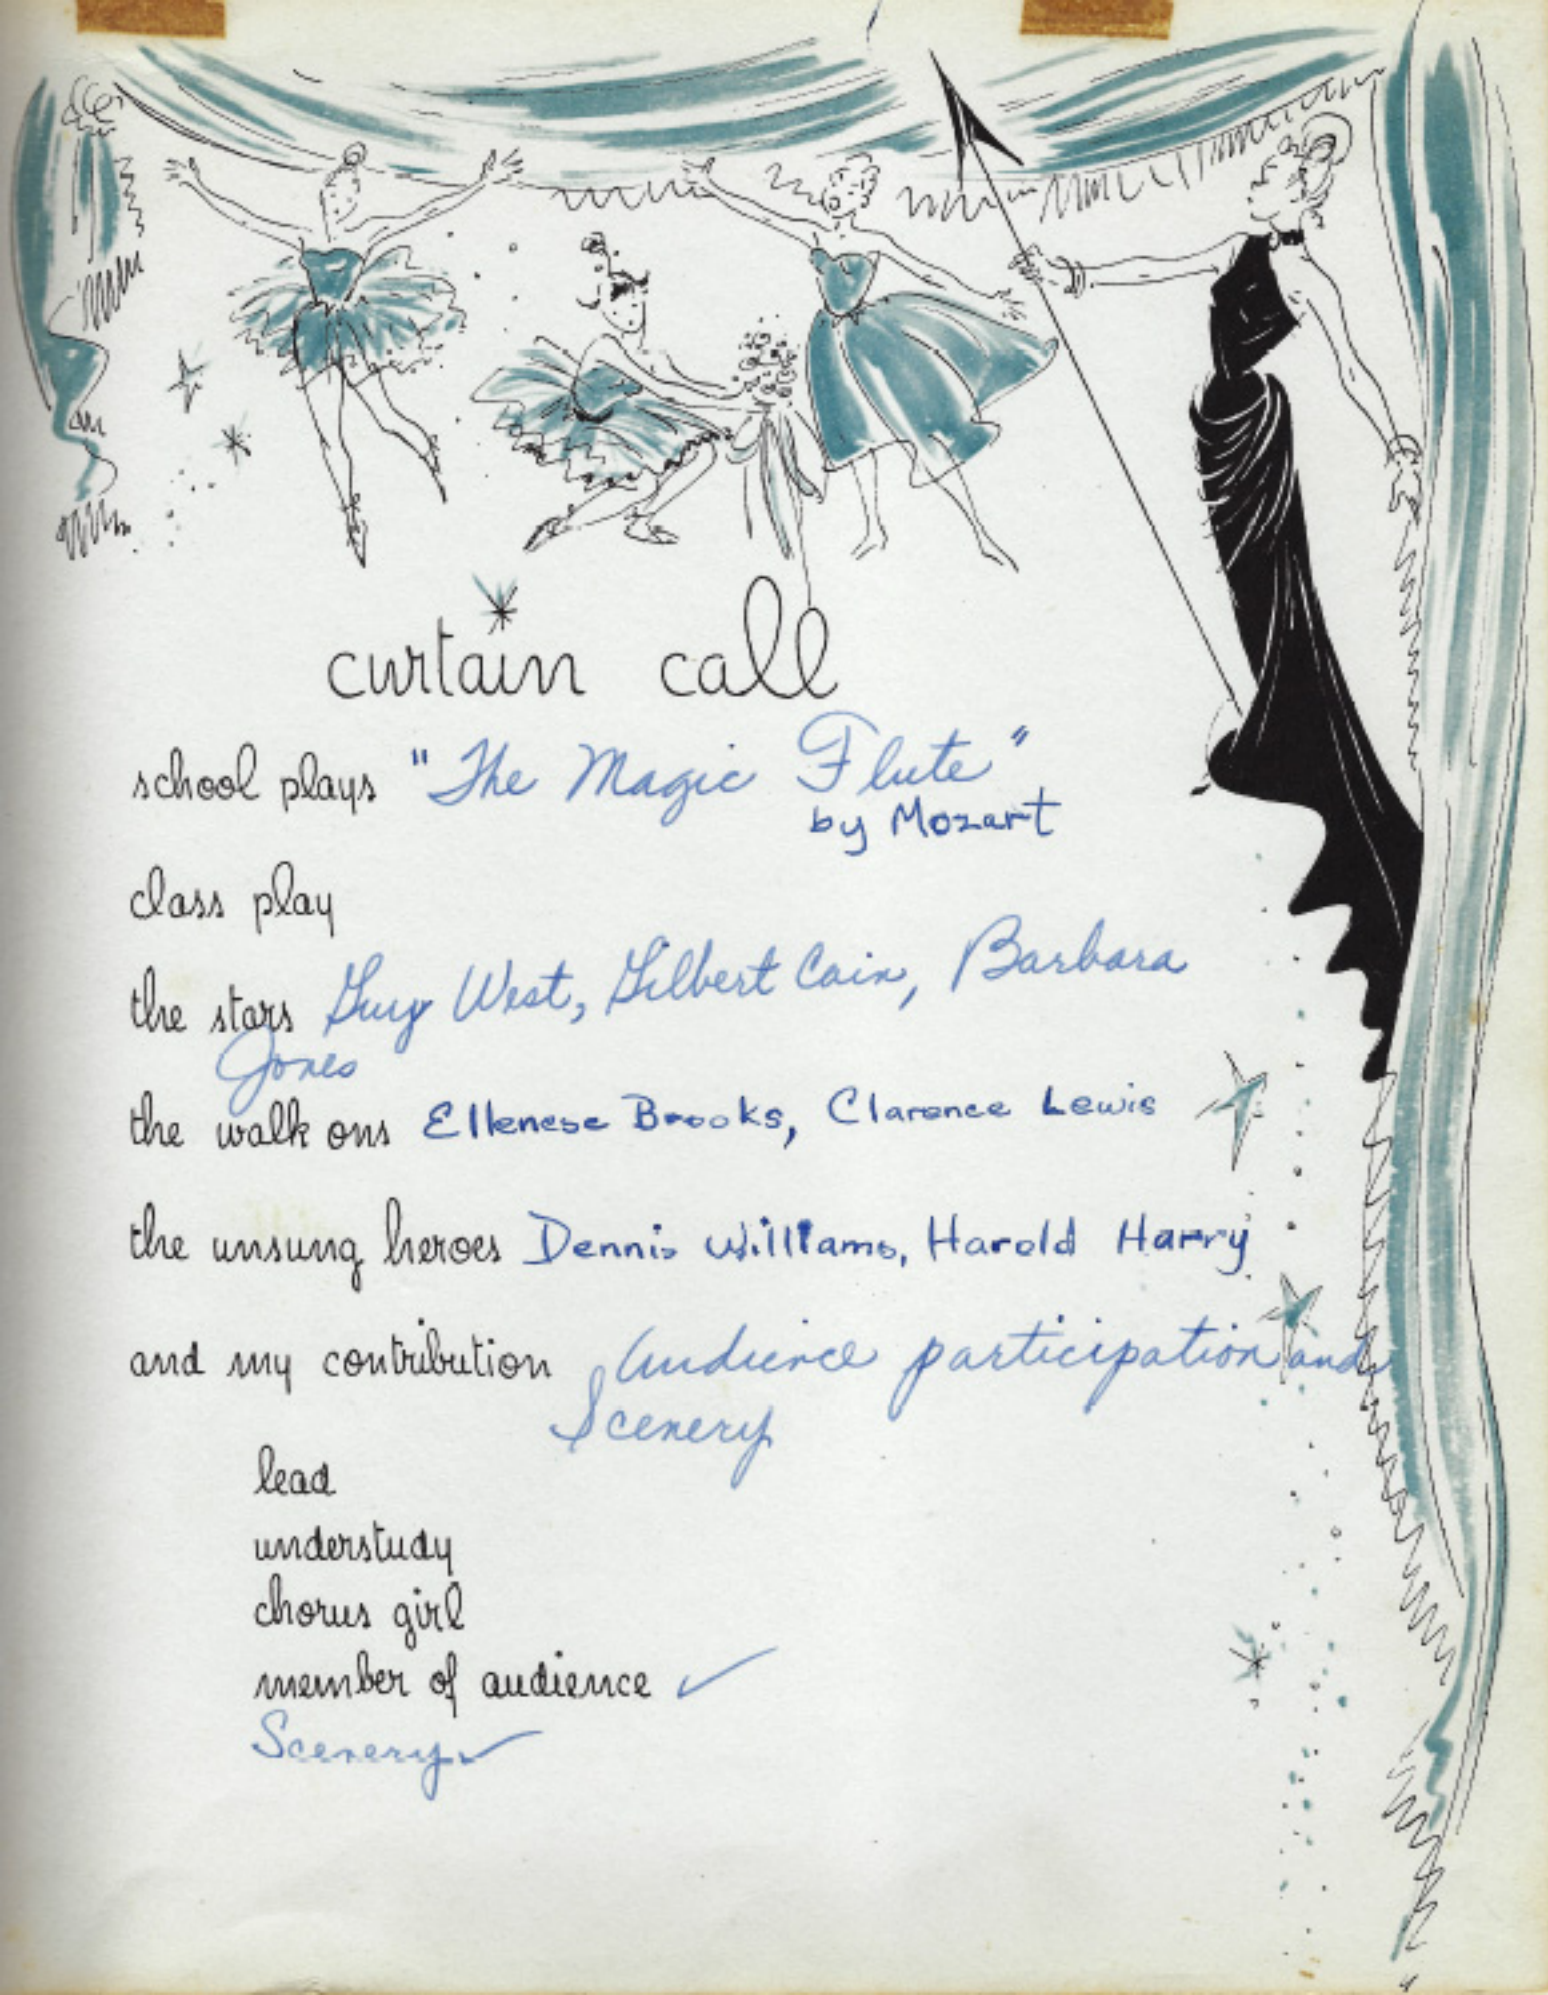 curtain call
school plays "The Magic Flute"
by Mozart
class play
the stars Guy West, Gilbert Cain, Barbara
Jones
the walk ons Ellenese Brooks, Clarence Lewis
the unsung heroes Dennis Williams, Harold Harry
and my contribution Audience participation and
Scenery
lead
understudy
chorus girl
member of audience ✓
Scenery ✓